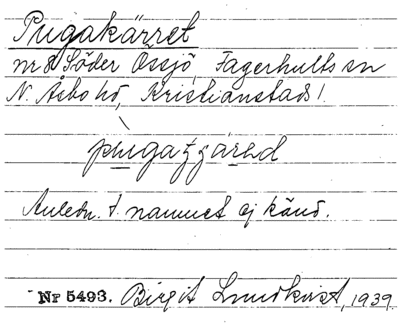 Pugakärret
nr 8 Söder Össjö, Fagerhults sn
N. Åsbo hd, Kristianstads l.
Anledn. t. namnet ej känd.
Nr 5493. Birgit Lundkvist, 1939.